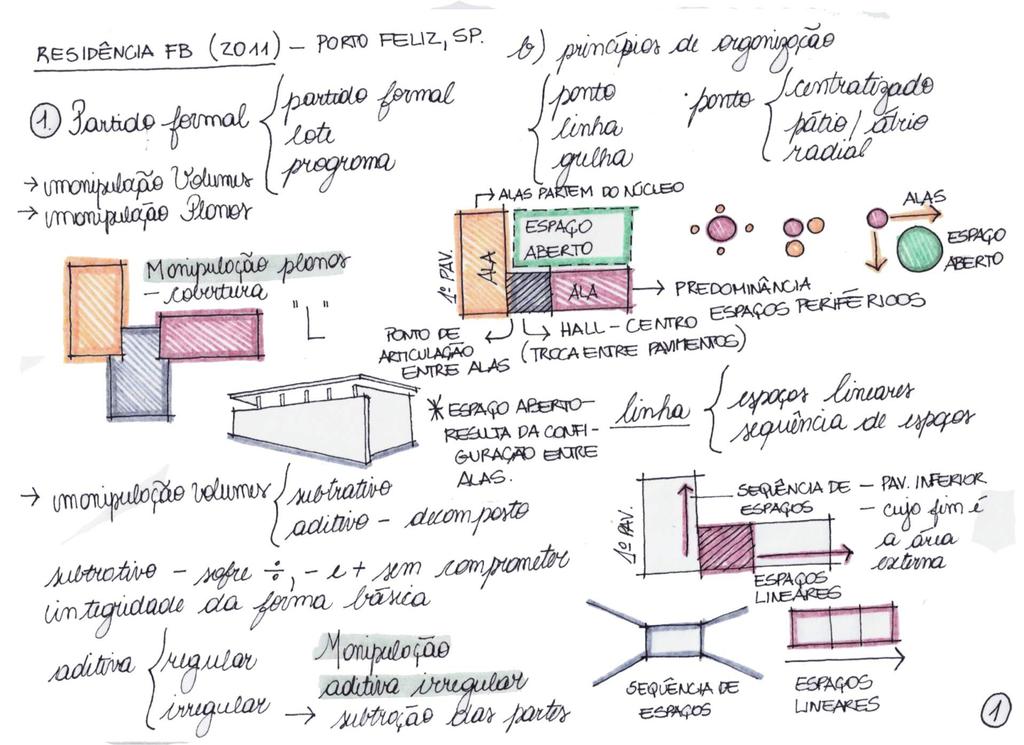 RESIDÊNCIA FB (2011) – PORTO FELIZ, SP.
① Partido formal
partido formal
lote
programa
→ manipulação Volumes
→ manipulação Planos
Manipulação planos
– cobertura
"L"
→ manipulação volumes
subtrativo
aditivo – decomposto
subtrativo – sofre ÷, – e + sem comprometer
integridade da forma básica
aditiva
regular
irregular
Manipulação
aditiva irregular
→ subtração das partes
b) princípios de organização
ponto
linha
grelha
· ponto
centratizado
pátio / átrio
radial
→ ALAS PARTEM DO NÚCLEO
1º PAV.
ALA
ESPAÇO
ABERTO
ALA
ALAS
ESPAÇO
ABERTO
→ PREDOMINÂNCIA
ESPAÇOS PERIFÉRICOS
PONTO DE
ARTICULAÇÃO
ENTRE ALAS
HALL – CENTRO
(TROCA ENTRE PAVIMENTOS)
* ESPAÇO ABERTO –
RESULTA DA CONFI-
GURAÇÃO ENTRE
ALAS.
linha
espaços lineares
sequência de espaços
1º PAV.
SEQUÊNCIA DE
ESPAÇOS
– PAV. INFERIOR
– cujo fim é
a área
externa
ESPAÇOS
LINEARES
SEQUÊNCIA DE
ESPAÇOS
ESPAÇOS
LINEARES
①